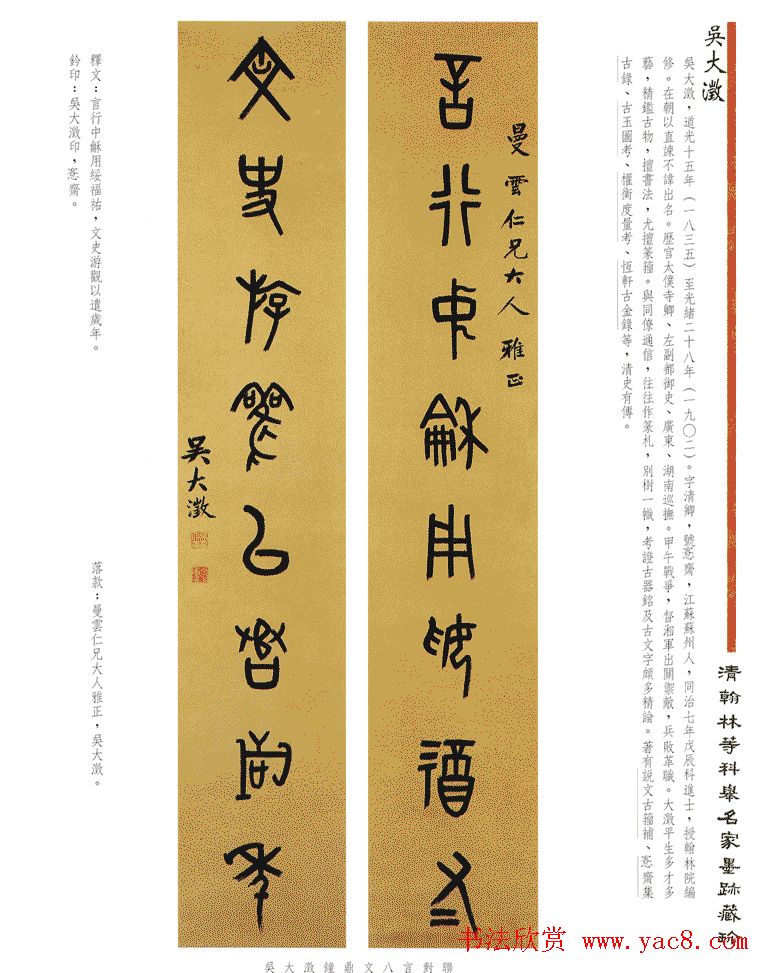 吳大澂
吳大澂，道光十五年（一八三五）至光緒二十八年（一九〇二）。字清卿，號愙齋，江蘇蘇州人，同治七年戊辰科進士，授翰林院編
修。在朝以直諫不諱出名。歷官太僕寺卿、左副都御史、廣東、湖南巡撫。甲午戰爭，督湘軍出關禦敵，兵敗革職。大澂平生多才多
藝，精鑑古物，擅書法，尤擅篆籀。與同僚通信，往往作篆札，別樹一幟，考證古器銘及古文字頗多精論。著有說文古籀補、愙齋集
古錄、古玉圖考、權衡度量考、恆軒古金錄等，清史有傳。
清翰林等科舉名家墨跡藏珍
曼雲仁兄大人雅正
言行中龢用綏福祐
文史游觀以遣歲年
吳大澂
釋文：言行中龢用綏福祐，文史游觀以遣歲年。
鈐印：吳大澂印，愙齋。
落款：曼雲仁兄大人雅正，吳大澂。
吳大澂鐘鼎文八言對聯
书法欣赏 www.yac8.com